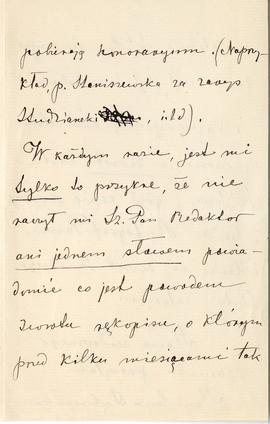 pobierają honoraryum. (Naprzy
kład, p. Staniszewska za zarys
Studzianki, itd).
W każdym razie, jest mi
tylko to przykre, że nie
raczył mi Sz. Pan Redaktor
ani jednem słowem powia-
domić co jest powodem
zwrotu rękopisu, o którym
przed kilku miesiącami tak